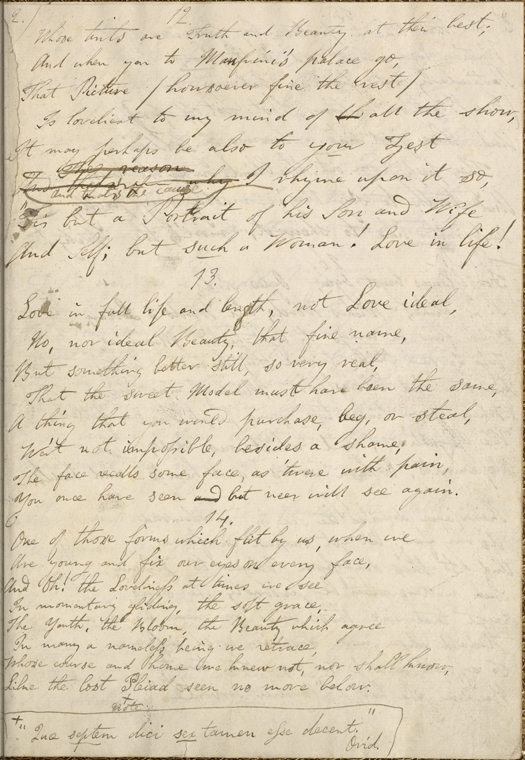 2.] 12.
Whose tints are Truth and Beauty at their best;
And when you to Manfrini's palace go,
That Picture (howsoever fine the rest)
Is loveliest to my mind of all the show,
It may perhaps be also to your Zest
The reason
and that's the cause I rhyme upon it so,
'Tis but a Portrait of his Son and Wife
And Self; but such a Woman! Love in life!
13.
Love in full life and length, not Love ideal,
No, nor ideal Beauty, that fine name,
But something better still, so very real,
That the sweet Model must have been the same,
A thing that you would purchase, beg, or steal,
Wer't not impossible, besides a shame;
The face recalls some face, as 'twere with pain,
You once have seen and but neer will see again.
14.
One of those forms which flit by us, when we
Are young and fix our eyes on every face,
And Oh! the Loveliness at times we see
In momentary gliding, the soft grace,
The Youth, the Bloom, the Beauty which agree
In many a nameless being we retrace,
Whose course and home we knew not, nor shall know,
Like the lost Pleiad seen no more below.
note.
+ "Quae septem dici sex tamen esse decent."
Ovid.